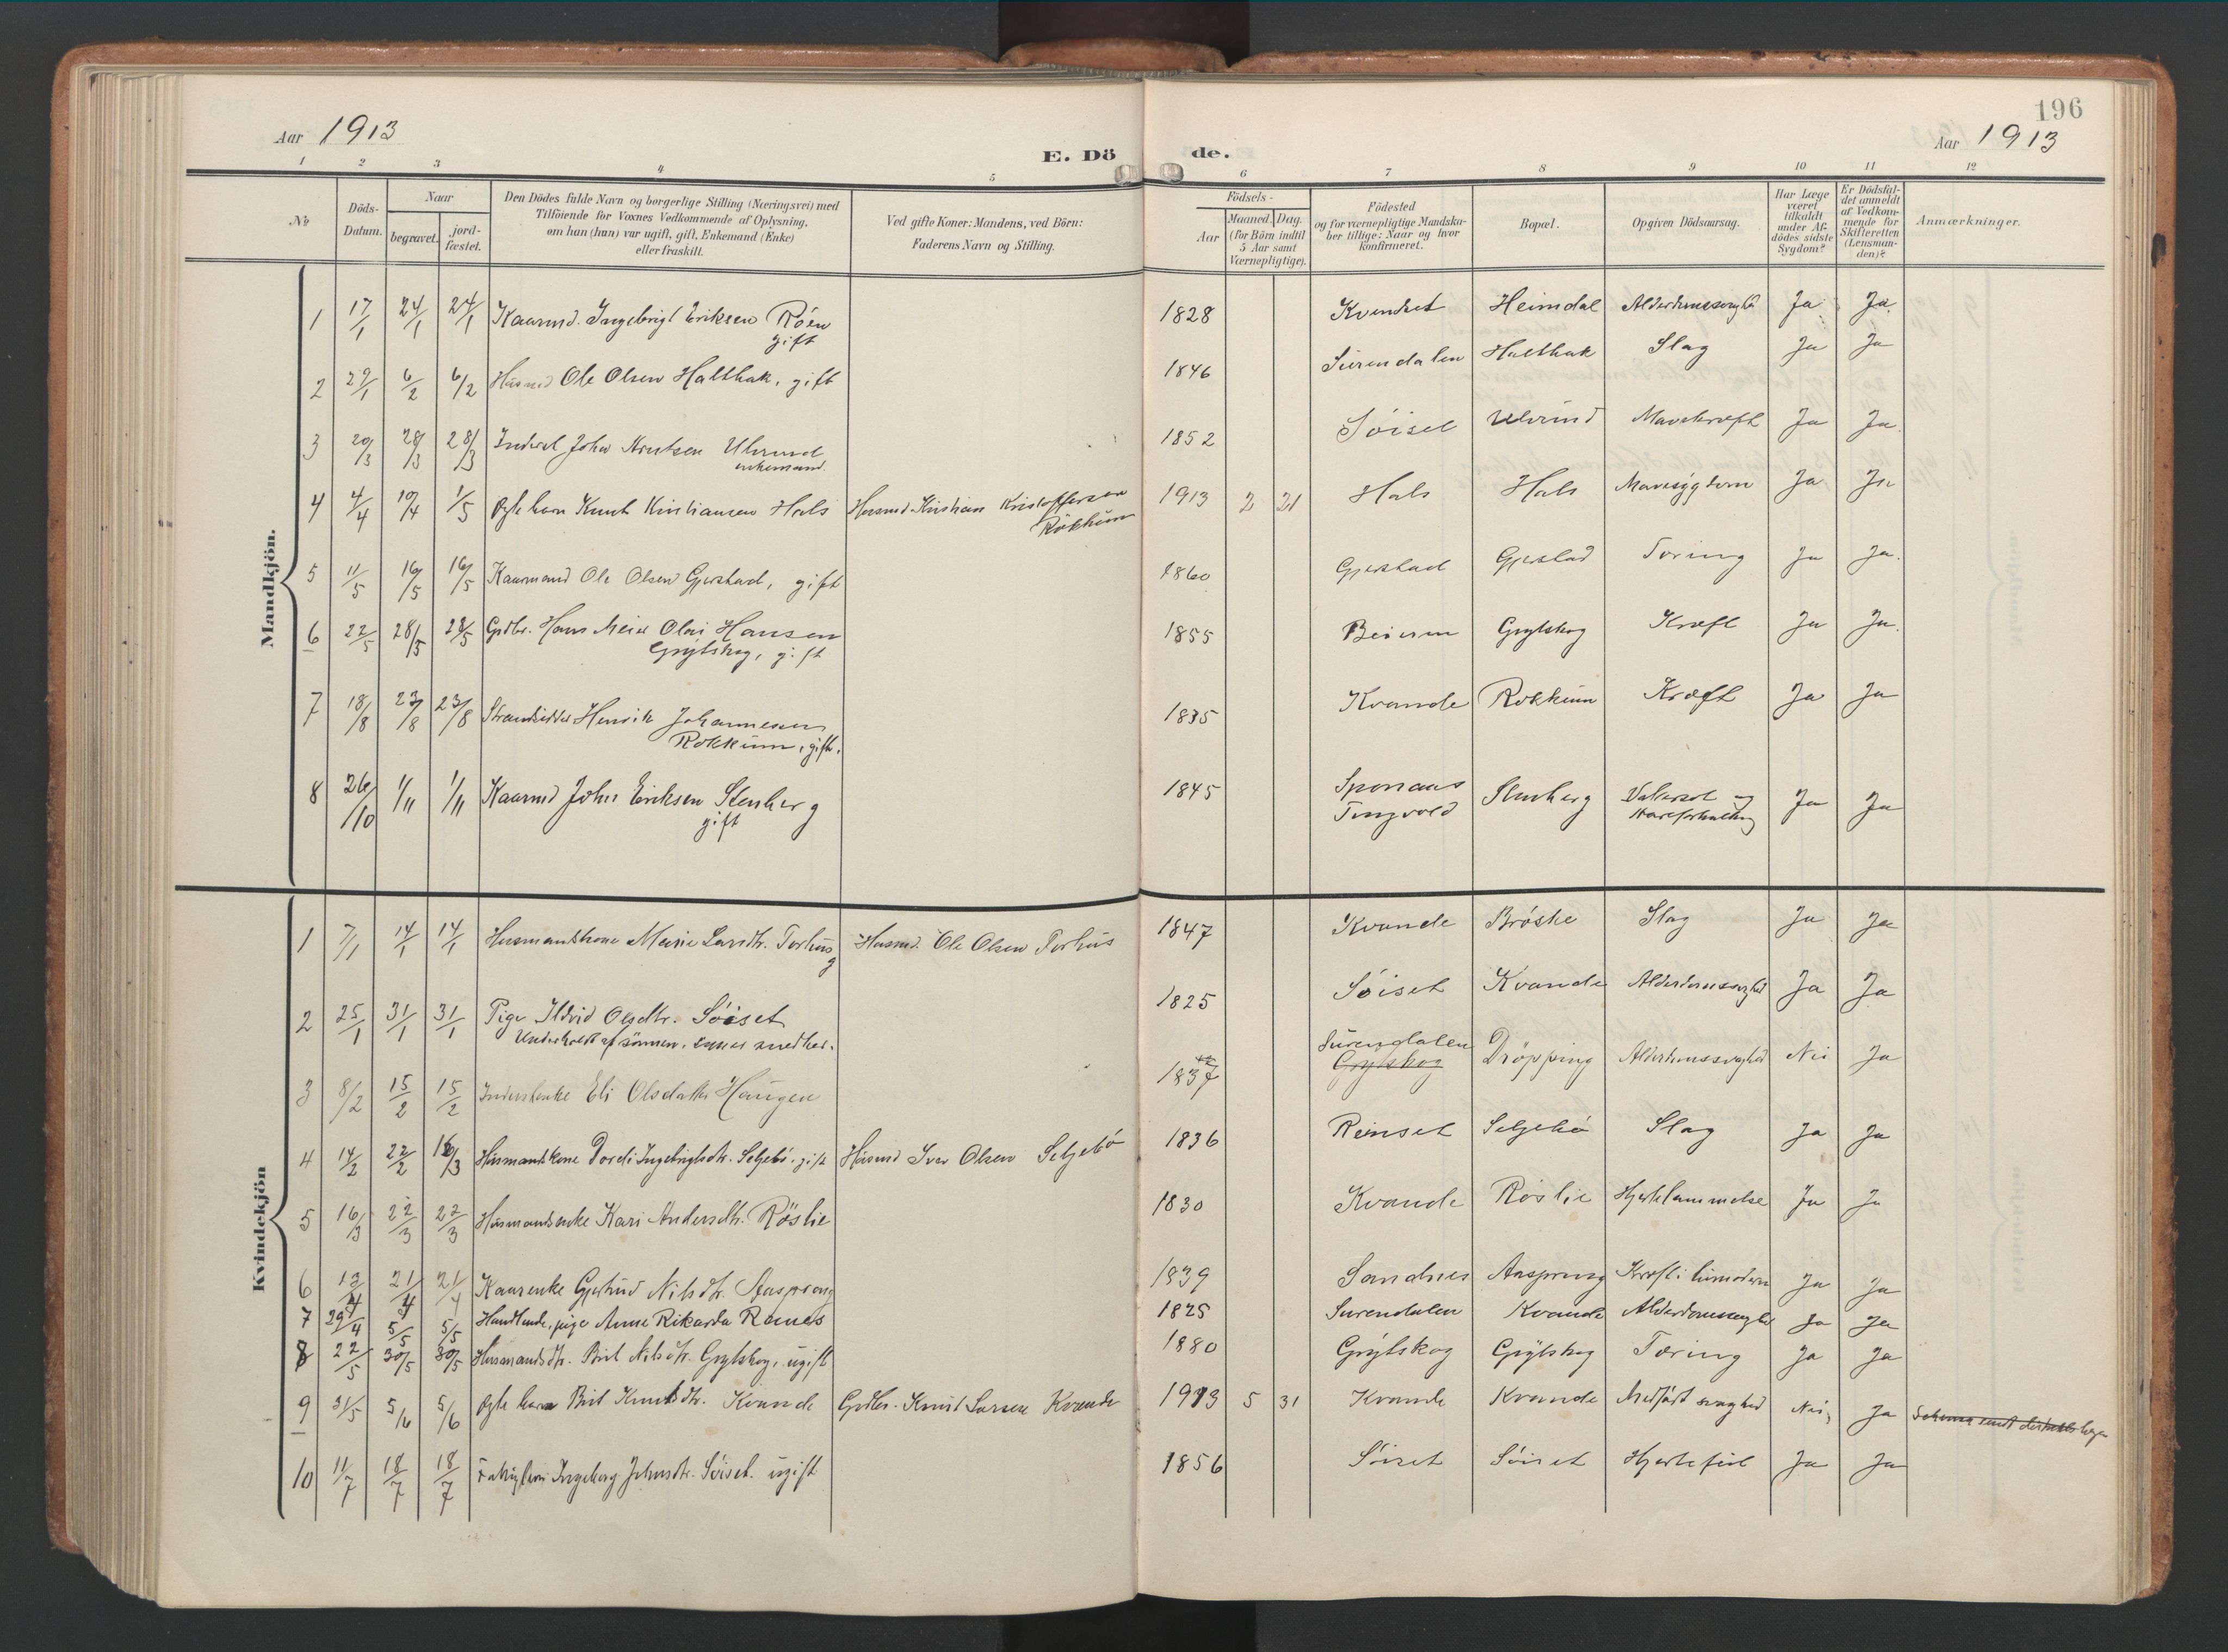 196
Aar 1913
Aar 1913
E. Dö de.
1 2 3 4 5 6 7 8 9 10 11 12
No
Döds-
Datum.
Naar
begravet.
jord-
fæstet.
Den Dödes fulde Navn og borgerlige Stilling (Næringsvei) med
Tilföiende for Voxnes Vedkommende af Oplysning,
om han (hun) var ugift, gift, Enkemand (Enke)
eller fraskilt.
Ved gifte Koner: Mandens, ved Börn:
Faderens Navn og Stilling.
Födsels-
Aar
Maaned. Dag.
(for Börn indtil
5 Aar samt
Værnepligtige).
Födested
og for værnepligtige Mandska-
ber tillige: Naar og hvor
konfirmeret.
Bopæl.
Opgiven Dödsaarsag.
Har Læge
været
tilkaldt
under Af-
dödes sidste
Sygdom?
Er Dödsfal-
det anmeldt
af Vedkom-
mende for
Skifteretten
(Lensman-
den)?
Anmærkninger.
Mandkjön.
1 17/1 24/1 24/1 Kaarmd. Ingebrigt Eriksen Röen 1828 Kvendset Heimdal Alderdomssvaghed Ja Ja.
gift
2 29/1 6/2 6/2 Husmd Ole Olsen Halthak, gift 1846 Surendalen Halthak Slag Ja Ja
3 20/3 28/3 28/3 Inderst John Knutsen Ulvund 1852 Söiset Ulvund Mavekræft Ja Ja
enkemand.
4 4/4 10/4 1/5 Ægte barn Knut Kristiansen Hals Husmd. Kristian Kristoffersen 1913 2 21 Hals Hals Mavesygdom Ja Ja
Rökkum
5 11/5 16/5 16/5 Kaarmand Ole Olsen Gjerstad, gift 1860 Gjerstad Gjerstad Tæring Ja Ja.
6 22/5 28/5 28/5 Grdbr. Hans Meier Olai Hansen 1855 Beieren Grytskog Kræft Ja Ja.
Grytskog, gift
7 18/8 23/8 23/8 Strandsidder Henrik Johannesen 1835 Kvande Rokkum Kræft Ja Ja
Rokkum, gift.
8 26/10 1/11 1/11 Kaarmd John Eriksen Stenberg 1845 Stenberg Ja Ja
gift Tingvold
Kvindekjön
1 7/1 14/1 14/1 Husmandskone Marie Larsdtr. Torhus Husmd. Ole Olsen Torhus 1847 Kvande Bröske Slag Ja Ja
g
2 25/1 31/1 31/1 Pige Ildrid Olsdtr. Söiset 1825 Söiset Kvande Alderdomssvaghed Ja Ja
Underholdt af sönnen,
3 8/2 15/2 15/2 Inderstenke Eli Olsdatter Haugen 1837 Surendalen Dröpping Alderdomssvaghed Nei Ja
Grytskog
4 14/2 22/2 16/3 Husmandskone Dordi Ingebrigtsdtr. Seljebö. gift Husmd Iver Olsen Seljebö 1836 Reinset Seljebö Slag Ja Ja
5 16/3 22/3 22/3 Husmandsenke Kari Andersdtr. Röslie 1830 Kvande Röslie Hjertelammelse Ja Ja
6 13/4 21/4 21/4 Kaarenke Gjertrud Nilsdtr. Aasprong 1839 Sandnes Aasprong Kræft i livmoderen Ja Ja
7 29/4 5/5 5/5 Handlende, pige Anne Rikarda Ramas 1825 Surendalen Kvande Alderdomssvaghed Ja Ja
8 22/5 30/5 30/5 Husmandsdtr. Birit Nilsdtr. Grytskog, ugift 1880 Grytskog Grytskog Tæring Ja Ja
9 31/5 5/6 5/6 Ægte barn Birit Knutsdtr. Kvande Grdbr. Knut Larsen Kvande 1913 5 31 Kvande Kvande Medfödt svaghed Nei, Ja
10 11/7 18/7 18/7 Ingeborg Johnsdtr. Söiset. ugift 1856 Söiset Söiset Hjertefeil Ja Ja